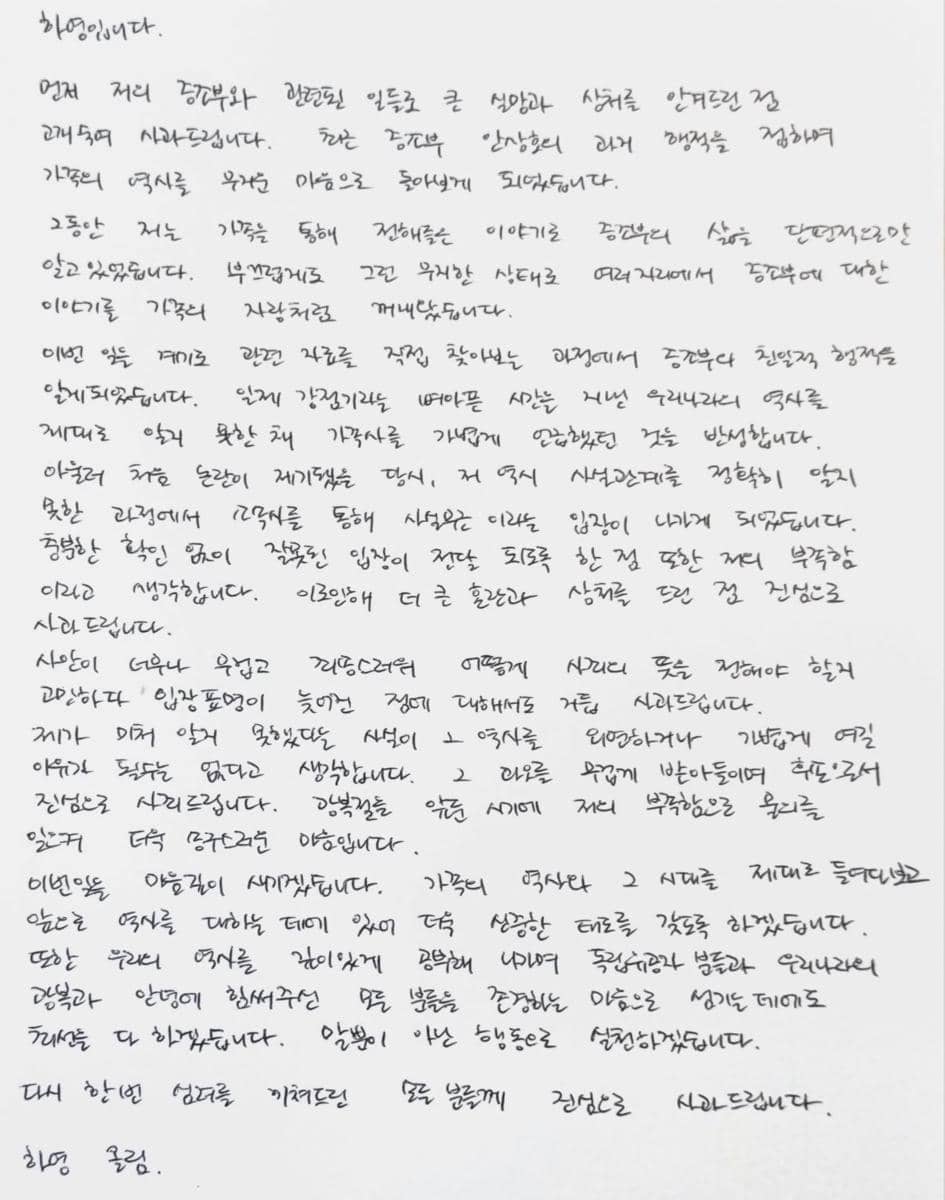 하영입니다.
먼저 저의 증조부와 관련된 일들로 큰 실망과 상처를 안겨드린 점
고개 숙여 사과드립니다. 최근 증조부 안상호의 과거 행적을 접하며
가족의 역사를 무거운 마음으로 돌아보게 되었습니다.
그동안 저는 가족을 통해 전해들은 이야기로 증조부의 삶을 단편적으로만
알고 있었습니다. 부끄럽게도 그런 무지한 상태로 여러 자리에서 증조부에 대한
이야기를 가족의 자랑처럼 꺼내왔습니다.
이번 일을 계기로 관련 자료를 직접 찾아보는 과정에서 증조부의 친일적 행적을
알게되었습니다. 일제 강점기라는 뼈아픈 시간을 지낸 우리나라의 역사를
제대로 알지 못한 채 가족사를 가볍게 언급했던 것을 반성합니다.
아울러 처음 논란이 제기됐을 당시, 저 역시 사실관계를 정확히 알지
못한 과정에서 소속사를 통해 사실무근 이라는 입장이 나가게 되었습니다.
충분한 확인 없이 잘못된 입장이 전달 되도록 한 점 또한 저의 부족함
이라고 생각합니다. 이로인해 더 큰 혼란과 상처를 드린 점 진심으로
사과드립니다.
사안이 너무나 무겁고 죄송스러워 어떻게 사죄의 뜻을 전해야 할지
고민하다 입장표명이 늦어진 점에 대해서도 거듭 사과드립니다.
제가 미처 알지 못했다는 사실이 그 역사를 외면하거나 가볍게 여길
이유가 될수는 없다고 생각합니다. 그 과오를 무겁게 받아들이며 후손으로서
진심으로 사죄드립니다. 광복절을 앞둔 시기에 저의 부족함으로 물의를
일으켜 더욱 송구스러운 마음입니다.
이번일을 마음깊이 새기겠습니다. 가족의 역사와 그 시대를 제대로 들여다보고
앞으로 역사를 대하는 데에 있어 더욱 신중한 태도를 갖도록 하겠습니다.
또한 우리의 역사를 깊이있게 공부해 나가며 독립유공자 분들과 우리나라의
광복과 안녕에 힘써주신 모든 분들을 존경하는 마음으로 섬기는 데에도
최선을 다 하겠습니다. 말뿐이 아닌 행동으로 실천하겠습니다.
다시 한번 심려를 끼쳐드린 모든 분들께 진심으로 사과드립니다.
하영 올림.